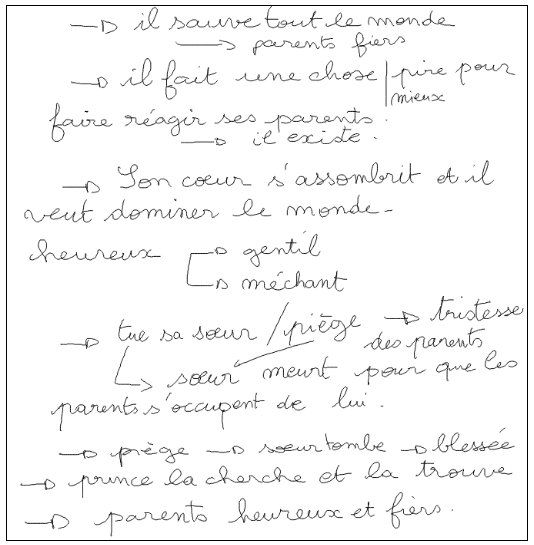 → il sauve tout le monde
→ parents fiers
→ il fait une chose / pire pour
mieux
faire réagir ses parents.
→ il existe.
→ Son cœur s'assombrit et il
veut dominer le monde -
heureux → gentil
→ méchant
→ tue sa sœur / piège → tristesse
des parents
→ sœur meurt pour que les
parents s'occupent de lui.
→ piège → sœur tombe → blessée
→ prince la cherche et la trouve
→ parents heureux et fiers.